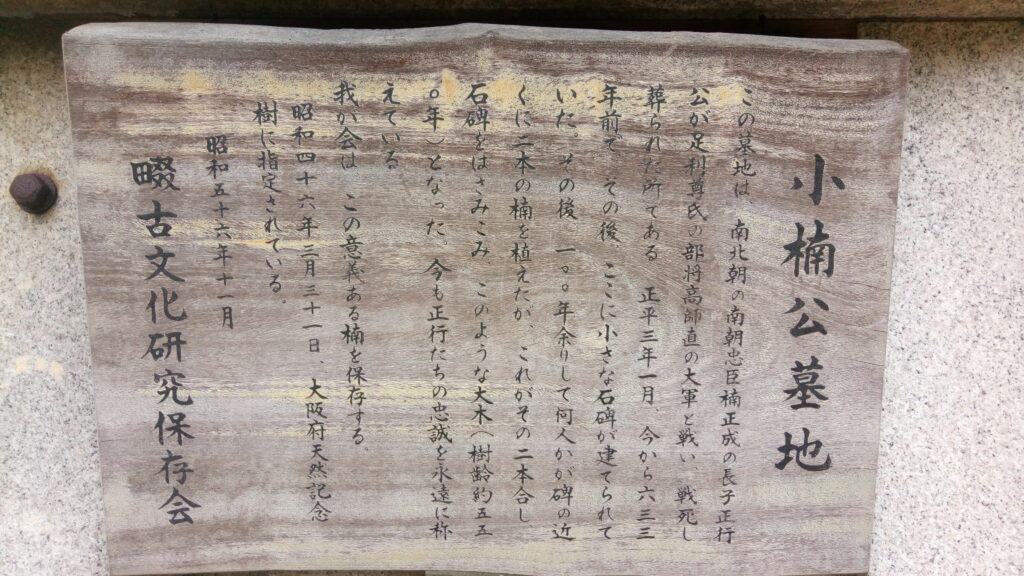 小楠公墓地
この墓地は、南北朝の南朝忠臣楠正成の長子正行
公が足利尊氏の部将高師直の大軍と戦い、戦死し
葬られた所である 正平三年一月、今から六三三
年前て その後 ここに小さな石碑が建てられて
いた。その後、一〇〇年余りして何人かが碑の近
くに二本の楠を植えたが、これがその二本合し
石碑をはさみこみ このような大木（樹齢約五五
〇年）となった。今も正行たちの忠誠を永遠に称
えている
我が会は この意義ある楠を保存する
昭和四十六年三月三十一日、大阪府天然記念
樹に指定されている。
昭和五十六年十一月
畷古文化研究保存会